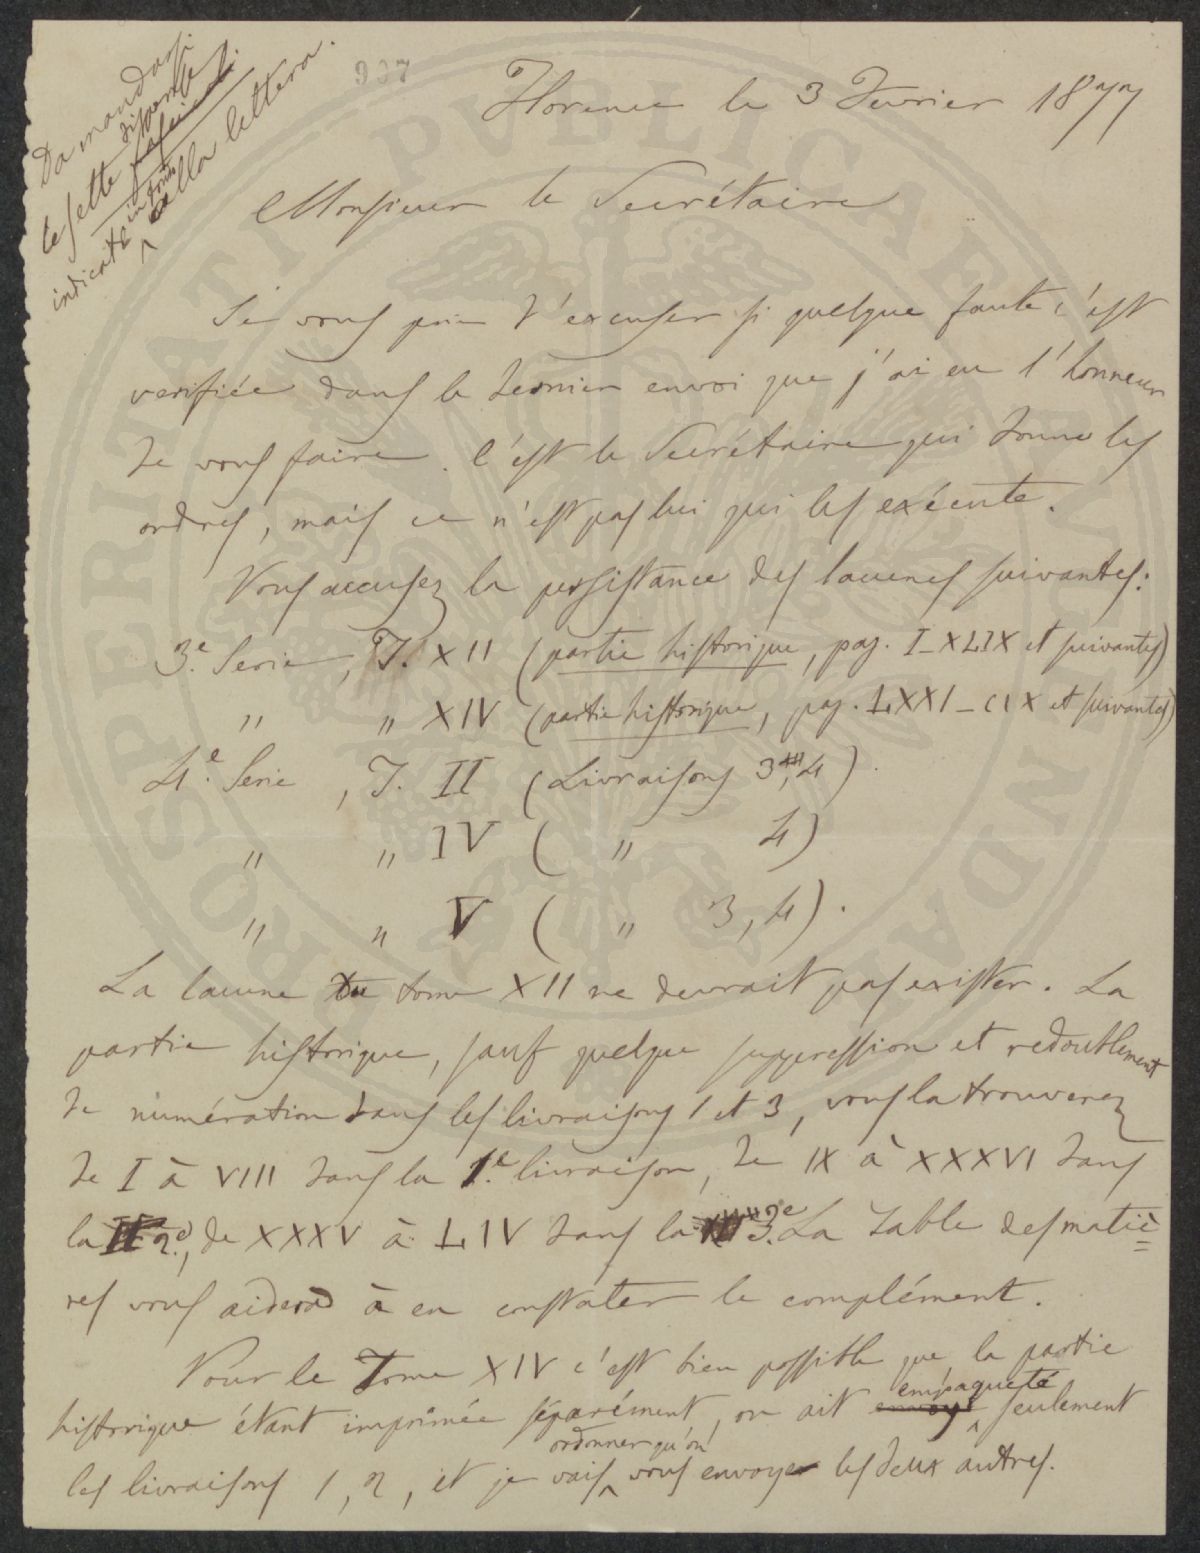 Da mandarsi
le sette dispense
fascicoli
indicate in fono
alla lettera.
937
Florence le 3 Fevrier 1877
Monsieur le Secrétaire
Je vous prie d'excuser si quelque faute s'est
verifiée dans le dernier envoi que j'ai eu l'honneur
de vous faire. C'est le Secrétaire qui donne les
ordres, mais ce n'est pas lui qui les exécute.
Vous accusez la persistance des lacunes suivantes:
3.e Serie, T. XII (partie historique, pag. I-XLIX et suivantes)
" " XIV (partie historique, pag. LXXI-CIX et suivantes)
4.e Serie, T. II (Livraisons 3, 4).
" " IV ( " 4)
" " V ( " 3, 4).
La lacune du tome XII ne devrait pas exister. La
partie historique, sauf quelque suppression et redoublement
de numération dans les livraisons 1 et 3, vous la trouverez
de I à VIII dans la 1.e livraison, de IX à XXXVI dans
la 2.e, de XXXV à LIV dans la 3.e La Table des matiè=
res vous aidera à en constater le complément.
Pour le Tome XIV c'est bien possible que la partie
historique étant imprimée séparément, on ait envoyé empaqueté seulement
les livraisons 1, 2, et je vais ordonner qu'on vous envoye les deux autres.
PROSPERITATI PUBLICAE AUGENDAE